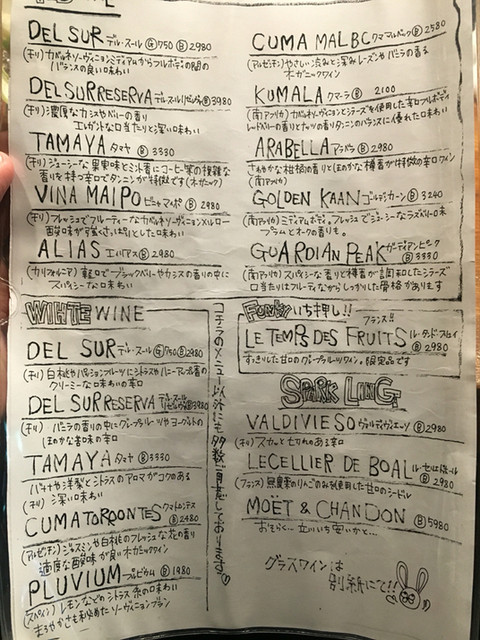 DEL SUR デル・スール Ⓖ750 Ⓑ2980
(チリ) カベルネソーヴィニヨンミディアムからフルボディの間の
バランスの良い味わい
DEL SUR RESERVA デル・スールリゼルヴァ Ⓑ3980
(チリ) 濃厚なカシスやベリーの香り
エレガントな口当たりと深い味わい
TAMAYA タマヤ Ⓑ3330
(チリ) ジューシーな果実味とミント香にコーヒー系の複雑な
香りを持つ辛口でタンニンが特徴です(オーガニック)
VINA MAIPO ビニャマイポ Ⓑ2980
(チリ) フレッシュでフルーティーなカベルネソーヴィニヨン×メルロー
酸味が強くさっぱりとした味わい
ALIAS エイリアス Ⓑ2980
(カリフォルニア) 軽口でブラックベリーやカシスの香りの中に
スパイシーな味わい
CUMA MALBC クママルベック Ⓑ2580
(アルゼチン) やさしい渋みと深みレーズンやバニラの香る
オーガニックワイン
KUMALA クマーラ Ⓑ 2100
(南アフリカ) カベルネソーヴィニヨンとシラーズを使用した辛口フルボディ
レッドベリーの香りとナッツの香りタンニンのバランスに優れた味わい
ARABELLA アラベラ Ⓑ2980
さわやかな柑橘の香りとほのかな樽香が特徴の辛口ワイン
(南アフリカ)
GOLDEN KAAN ゴールデンカーン Ⓑ3240
(南アフリカ) ミディアムボディ。フレッシュでジューシーなラズベリー味
プラムとオークの香りも。
GUARDIAN PEAK ガーディアンピーク Ⓑ3330
(南アフリカ) スパイシーな香りと樽香が調和したシラーズ
口当たりはフルーティながらしっかりした骨格があります
WIHTE WINE
DEL SUR デル・スール Ⓖ750 Ⓑ2980
(チリ) 白桃やパッションフルーツにシトラスやハニーアップル香の
クリーミーな口味わいの辛口
DEL SUR RESERVA デル・スールリゼルヴァ Ⓑ3980
(チリ) バニラの香りの中にグレープフルーツやヨーグルトの
ほのかな苦味の辛口
TAMAYA タマヤ Ⓑ3330
バナナや洋梨とシトラスのアロマがコクのある
(チリ) 深い口味わい
CUMA TORRONTES クマトロンテス Ⓑ2480
(アルゼチン) ジャスミンや白桃のフレッシュな花の香り
適度な酸味が良いオーガニックワイン
PLUVIUM プルビウム Ⓑ1980
(スペイン) レモンなどのシトラス系の口味わい
まろやかさも秘めたソーヴィニヨンブラン
コチラのメニュー以外にも多数ご用意しております♡
Funky いち押し!!
フランス!!
LE TEMPS DES FRUITS ル・タン・デ・フルイ
Ⓑ2980
すっきりした甘口のグレープフルーツワイン。限定品です
SPARKLING
VALDIVIESO ヴァルディヴィエソ Ⓑ2980
(チリ) スカッとキレのある辛口
LECELLIER DE BOAL ル・セリエドボール
Ⓑ2980
(フランス) 無農薬のりんごのみ使用した甘口のシードル
MOËT & CHANDON Ⓑ5980
おそらく…立川いち安いかと…
グラスワインは
別紙にて!!